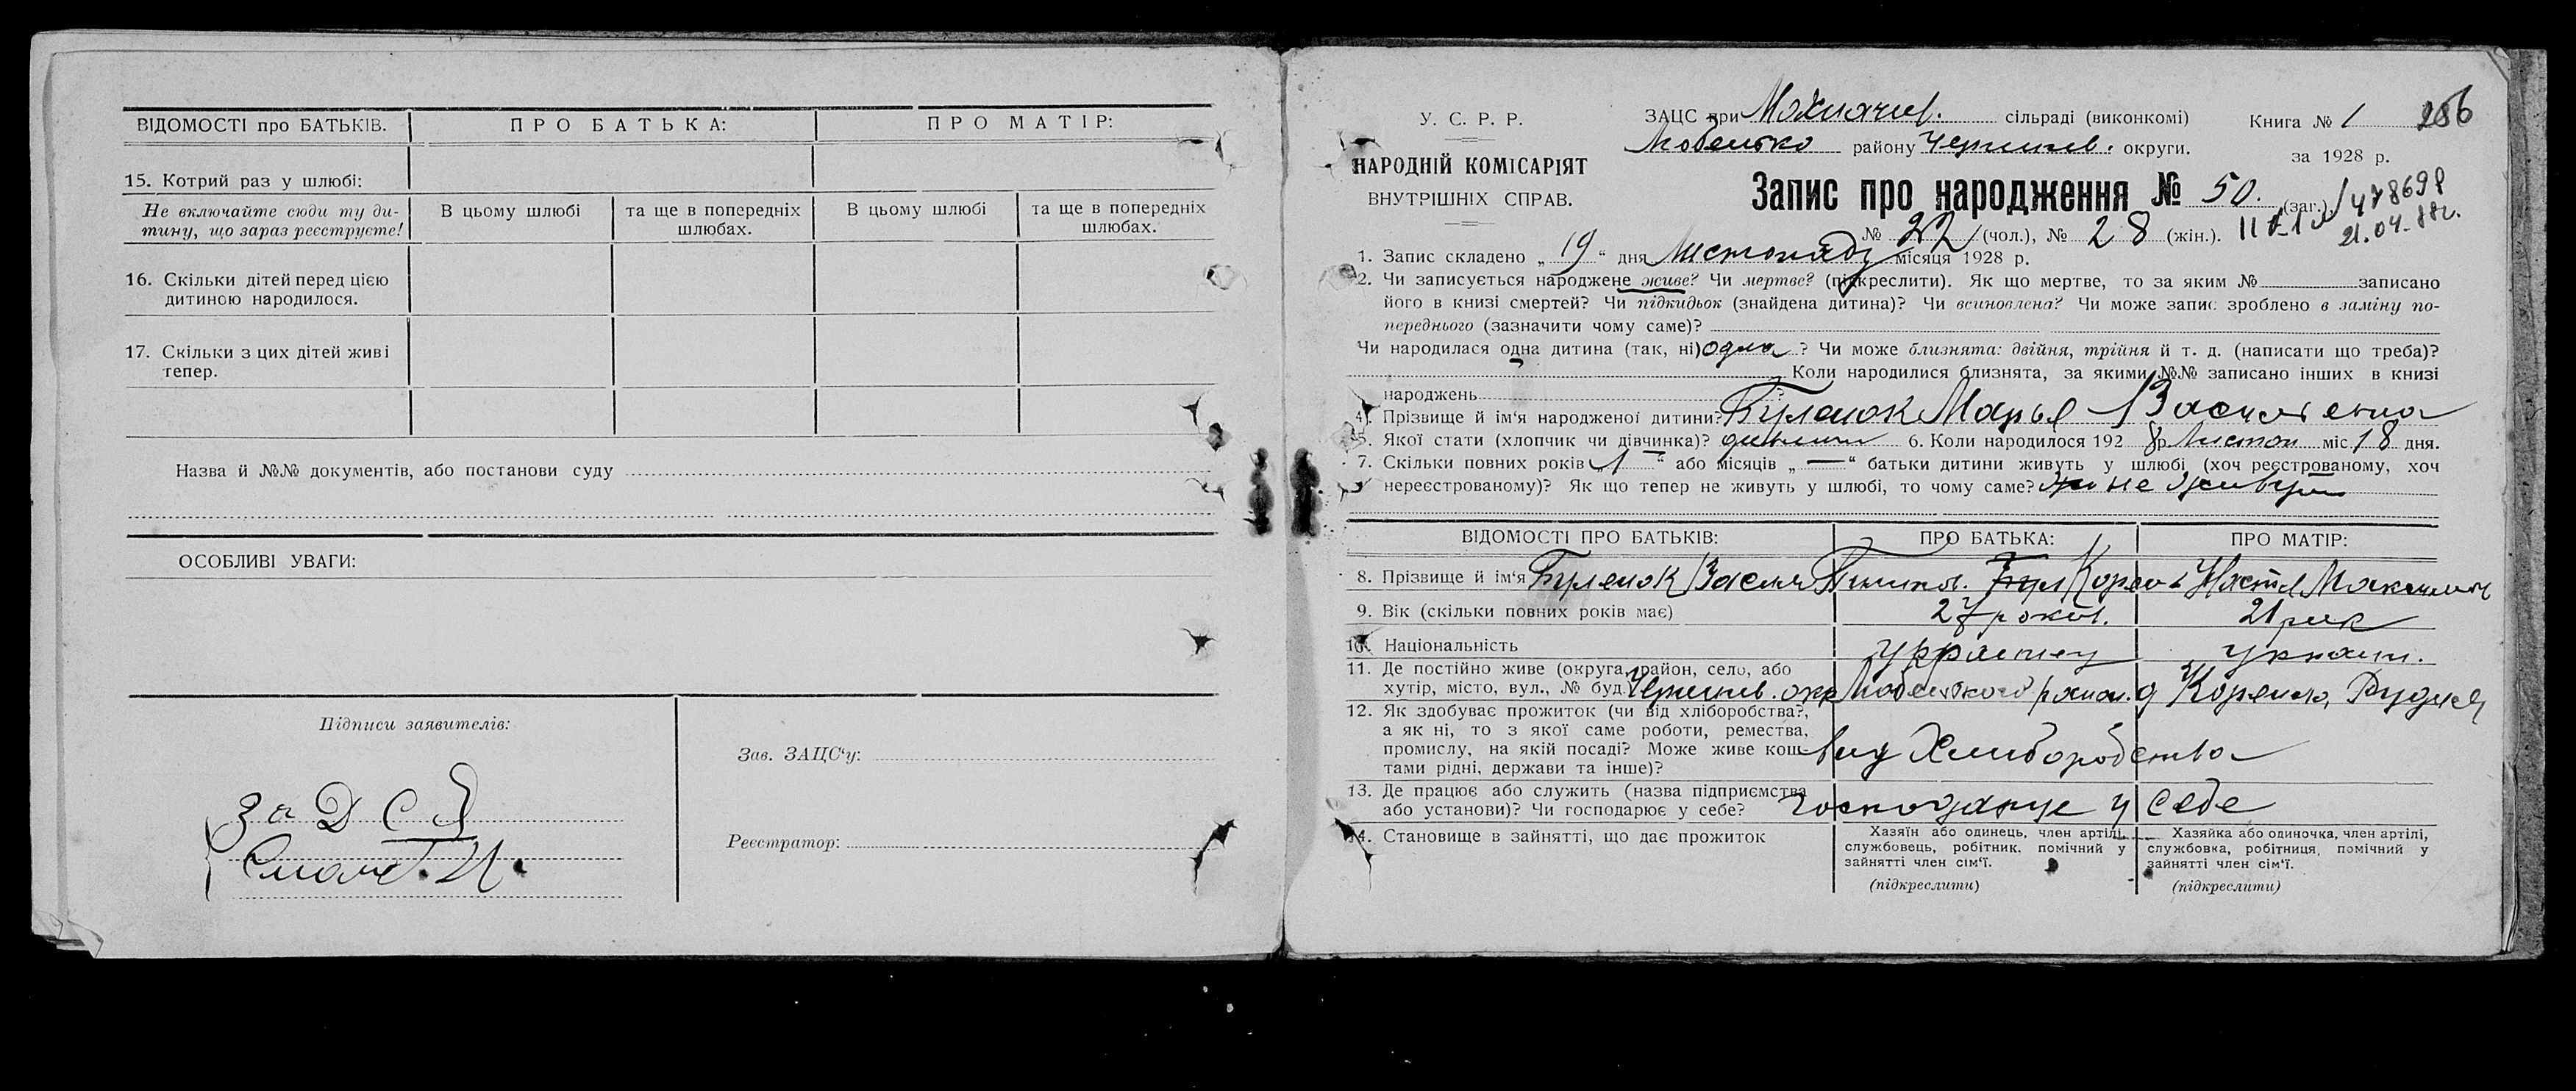 ВІДОМОСТІ про БАТЬКІВ. ПРО БАТЬКА: ПРО МАТІР:
15. Котрий раз у шлюбі:
Не включайте сюди ту ди-
тину, що зараз реєструєте!
В цьому шлюбі
та ще в попередніх
шлюбах.
В цьому шлюбі
та ще в попередніх
шлюбах.
16. Скільки дітей перед цією
дитиною народилося.
17. Скільки з цих дітей живі
тепер.
Назва й №№ документів, або постанови суду
ОСОБЛИВІ УВАГИ:
Підписи заявителів:
За
Зав. ЗАЦС'у:
Реєстратор:
У. С. Р. Р.
НАРОДНІЙ КОМІСАРІЯТ
ВНУТРІШНІХ СПРАВ.
ЗАЦС при сільраді (виконкомі)
району Чернигів. округи.
Книга № 1
за 1928 р.
Запис про народження № 50. (заг.)
478698
21.04.88г.
№ 22 (чол.), № 28 (жін.).
1. Запис складено „19“ дня Листопаду місяця 1928 р.
2. Чи записується народжене живе? Чи мертве? (підкреслити). Як що мертве, то за яким № записано
його в книзі смертей? Чи підкидьок (знайдена дитина)? Чи всиновлена? Чи може запис зроблено в заміну по-
переднього (зазначити чому саме)?
Чи народилася одна дитина (так, ні) одна ? Чи може близнята: двійня, трійня й т. д. (написати що треба)?
Коли народилися близнята, за якими №№ записано інших в книзі
народжень ?
4. Прізвище й ім'я народженої дитини? Буленок Марья Васильевна
5. Якої стати (хлопчик чи дівчинка)? 6. Коли народилося 192 8 р. Листоп міс. 18 дня.
7. Скільки повних років „1“ або місяців „—“ батьки дитини живуть у шлюбі (хоч реєстрованому, хоч
нереєстрованому)? Як що тепер не живуть у шлюбі, то чому саме? не живуть
ВІДОМОСТІ ПРО БАТЬКІВ: ПРО БАТЬКА: ПРО МАТІР:
8. Прізвище й ім'я Буленок Васил Настя Максимов
9. Вік (скільки повних років має) 27 років. 21 рик
10. Національність українец україн.
11. Де постійно живе (округа, район, село, або
хутір, місто, вул., № буд.) Чернигів. окр район. Рудня
12. Як здобуває прожиток (чи від хліборобства?,
а як ні, то з якої саме роботи, ремества,
промислу, на якій посаді? Може живе кош-
тами рідні, держави та інше)?
вид Хлиборобства
13. Де працює або служить (назва підприємства
або установи)? Чи господарює у себе?
господарує у себе
14. Становище в зайнятті, що дає прожиток
Хазяїн або одинець, член артілі,
службовець, робітник, помічний у
зайнятті член сім'ї.
(підкреслити)
Хазяйка або одиночка, член артілі,
службовка, робітниця, помічний у
зайнятті член сім'ї.
(підкреслити)